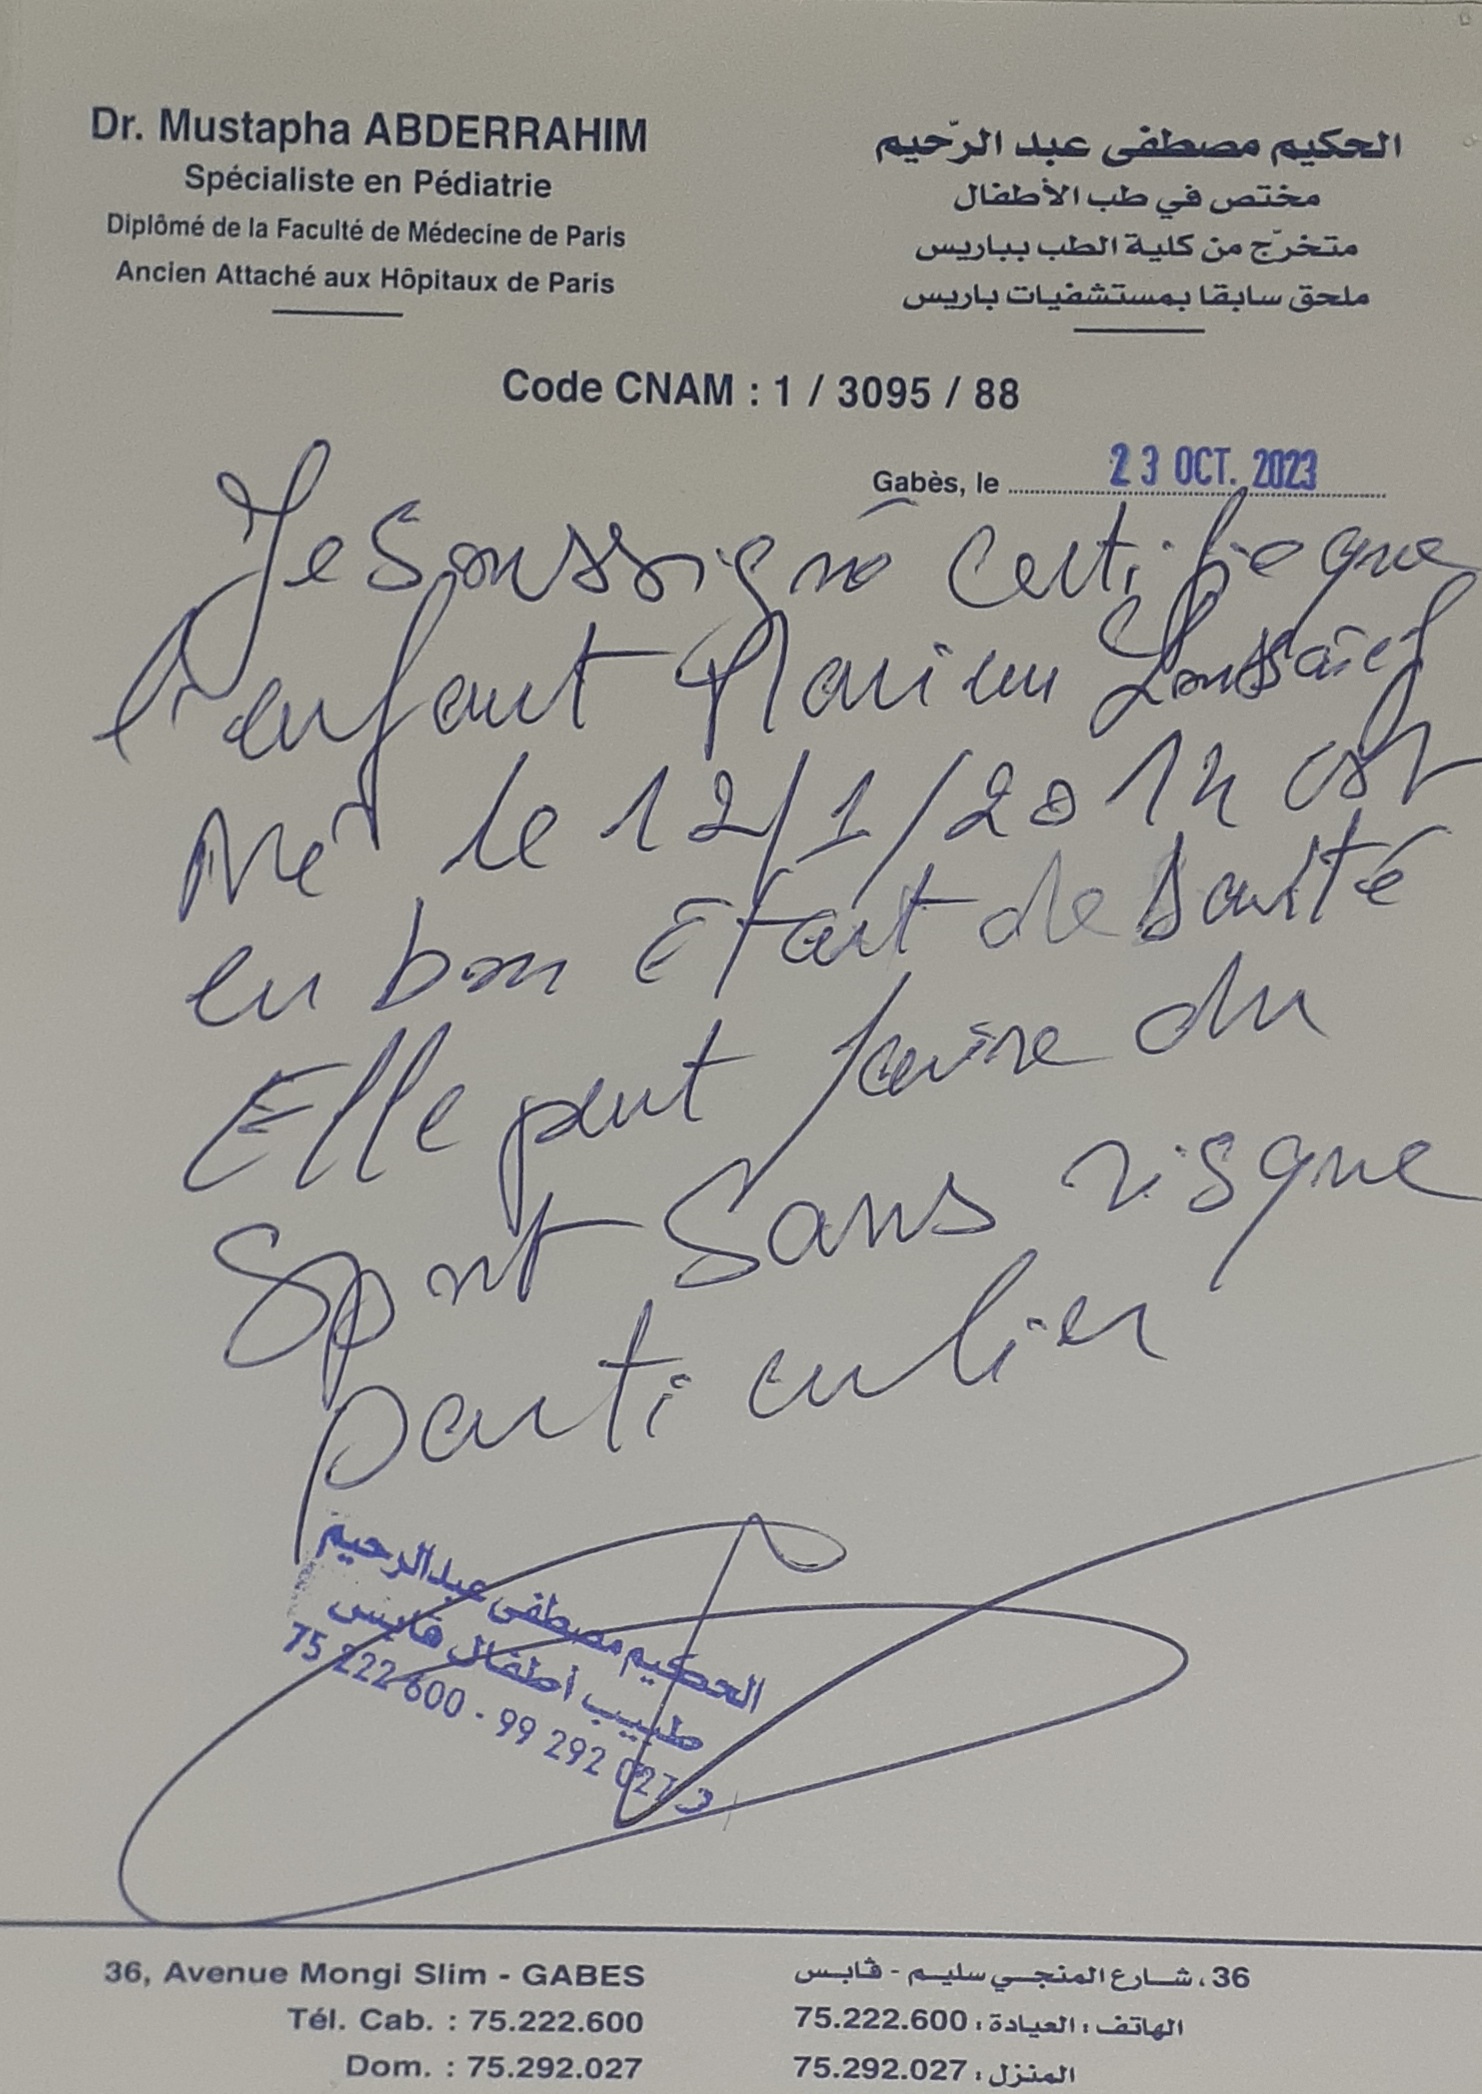 Dr. Mustapha ABDERRAHIM
Spécialiste en Pédiatrie
Diplômé de la Faculté de Médecine de Paris
Ancien Attaché aux Hôpitaux de Paris
الحكيم مصطفى عبد الرّحيم
مختص في طب الأطفال
متخرّج من كلية الطب بباريس
ملحق سابقا بمستشفيات باريس
Code CNAM : 1 / 3095 / 88
Gabès, le 23 OCT. 2023
Je soussigné certifie que
l'enfant Mariem
Né le 12/1/2014 est
en bon état de santé
Elle peut faire du
Sport Sans risque
particulier
الحكيم مصطفى عبدالرحيم
طبيب أطفال قابس
75 222 600 - 99 292 027
36, Avenue Mongi Slim - GABES
Tél. Cab. : 75.222.600
Dom. : 75.292.027
36، شارع المنجي سليم - قابس
الهاتف : العيادة : 75.222.600
المنزل : 75.292.027